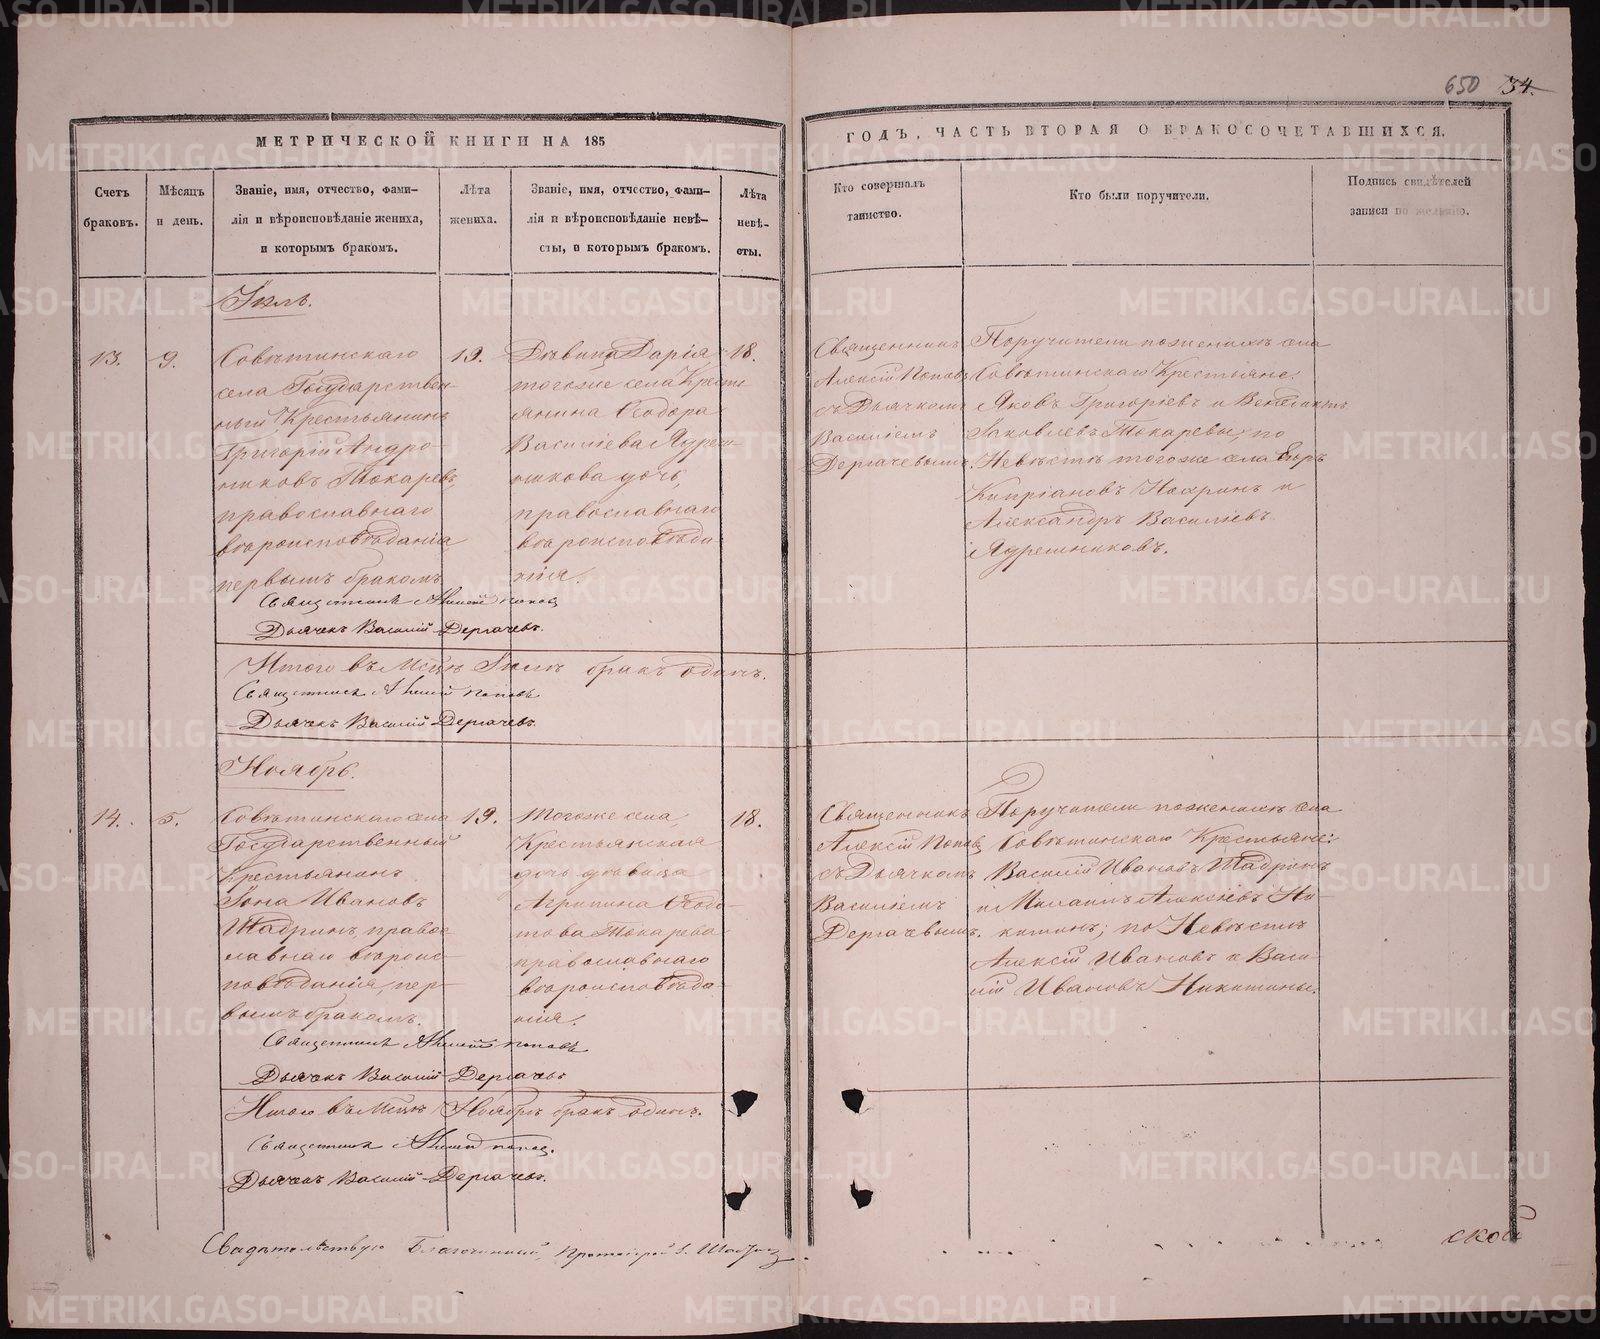 650 34.
МЕТРИЧЕСКОЙ КНИГИ НА 185
ГОДЪ, ЧАСТЬ ВТОРАЯ О БРАКОСОЧЕТАВШИХСЯ.
Счетъ
браковъ.
Мѣсяцъ
и день.
Званіе, имя, отчество, фами-
лія и вѣроисповѣданіе жениха,
и которымъ бракомъ.
Лѣта
жениха.
Званіе, имя, отчество, фами-
лія и вѣроисповѣданіе невѣ-
сты, и которымъ бракомъ.
Лѣта
невѣ-
сты.
Кто совершалъ
таинство.
Кто были поручители.
Подпись свидѣтелей
записи по желанію.
Іюль.
13.
9.
Совѣтинскаго
села Государствен-
ный Крестьянинъ
Григорій Андро-
никовъ Токаревъ,
православнаго
вѣроисповѣданія,
первымъ бракомъ
19.
Дѣвица Дарія,
тогоже села Кресть-
янина Ѳеодора
Василіева Ядреш-
никова дочь,
православнаго
вѣроисповѣда-
нія.
18.
Священникъ
Алексій Поповъ
съ Дьячкомъ
Василіемъ
Дергачевымъ.
Поручители поженихѣ села
Совѣтинскаго Крестьяне:
Яковъ Григоріевъ и Венедиктъ
Яковлевъ Токаревы; по
Невѣстѣ тогоже села Егоръ
Кипріановъ и
Александръ Василіевъ
Ядрешниковъ.
Священникъ Алексій Поповъ
Дьячекъ Василій Дергачевъ.
Итого въ Мсцѣ Іюлѣ бракъ одинъ.
Священникъ Алексій Поповъ
Дьячекъ Василій Дергачевъ.
Ноябрь.
14.
5.
Совѣтинскаго села
Государственный
Крестьянинъ
Іона Ивановъ
Шадринъ, правос-
лавнаго вѣроис-
повѣданія, пер-
вымъ бракомъ.
19.
Тогоже села,
Крестьянская
дочь дѣвица
Агрипина Ѳедо-
това Токарева
православнаго
вѣроисповѣда-
нія.
18.
Священникъ
Алексій Поповъ
съ Дьячкомъ
Василіемъ
Дергачевымъ.
Поручители поженихѣ села
Совѣтинскаго Крестьяне:
Василій Ивановъ Шадринъ
и Михаилъ Алексіевъ Ни-
китинъ; по Невѣстѣ
Алексій Ивановъ и Васи-
лій Ивановъ Никитины.
Священникъ Алексій Поповъ
Дьячекъ Василій Дергачевъ
Итого въ Мсцѣ Ноябрѣ бракъ одинъ.
Священникъ Алексій Поповъ.
Дьячекъ Василій Дергачевъ.
Свидѣтельствую Благочинный, Протоіерей
ской
METRIKI.GASO-URAL.RU